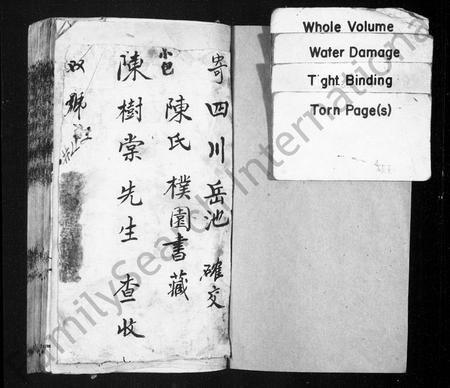 Whole Volume
Water Damage
Tight Binding
Torn Page(s)
寄四川岳池 確交
小包 陳氏樸園書藏
陳樹棠先生查收
双號
FamilySearch International